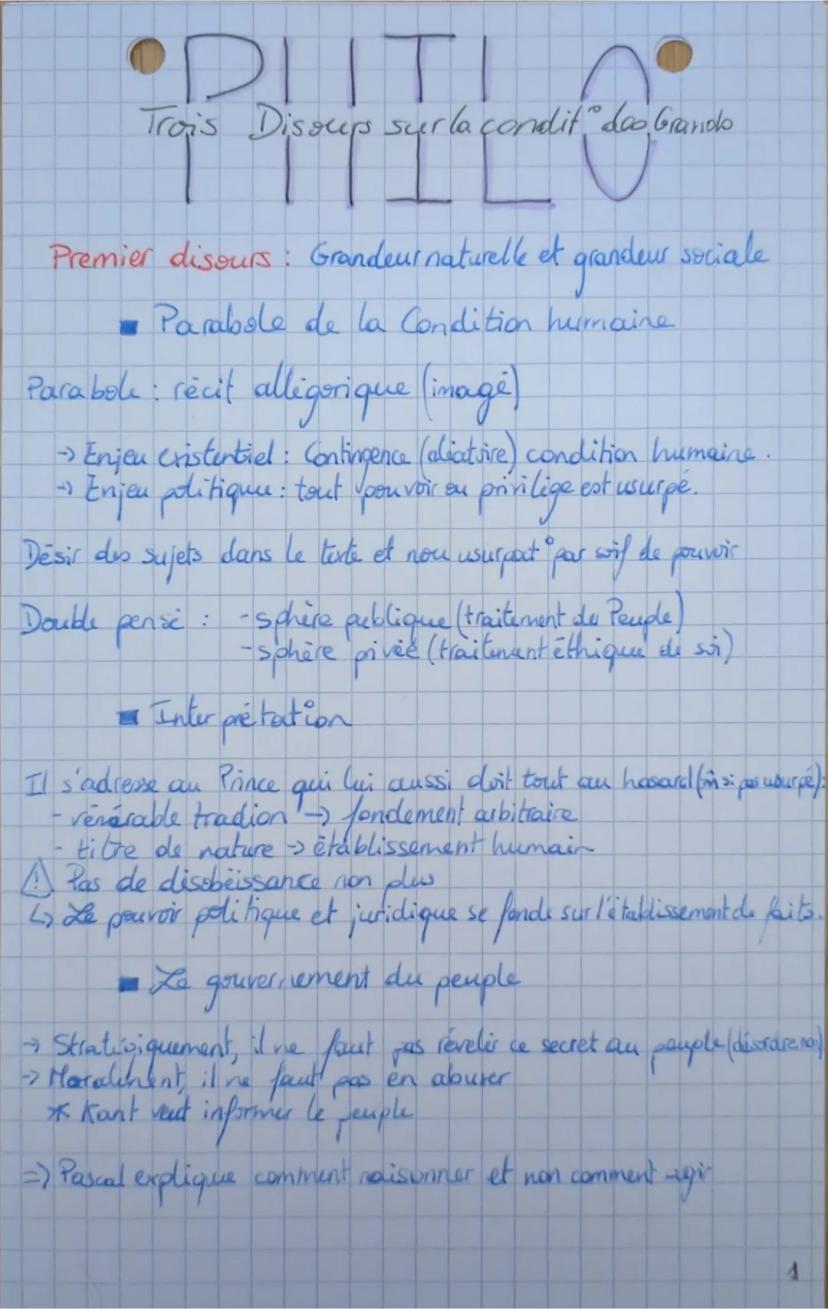 PHILO
Trois Discours sur la condit° des Grands
Premier disours : Grandeur naturelle et grandeur sociale
▪ Parabole de la Condition humaine
Parabole : récit allégorique (imagé)
-> Enjeu existentiel : Contingence (aléatoire) condition humaine.
-> Enjeu politique : tout pouvoir ou privilège est usurpé.
Désir des sujets dans le texte et non usurpat° par soif de pouvoir
Double pensé : - sphère publique (traitement du Peuple)
- sphère privée (traitement éthique de soi)
▪ Interprétation
Il s'adresse au Prince qui lui aussi doit tout au hasard (m si pas usurpé) :
- vénérable tradion -> fondement arbitraire
- titre de nature -> établissement humain
⚠ Pas de disobéissance non plus
↳ Le pouvoir politique et juridique se fonde sur l'établissement de faits.
▪ Le gouvernement du peuple
-> Stratégiquement, il ne faut pas révéler ce secret au peuple (désordre
-> Moralement, il ne faut pas en abuser
* Kant veut informer le peuple
=> Pascal explique comment raisonner et non comment agir
1